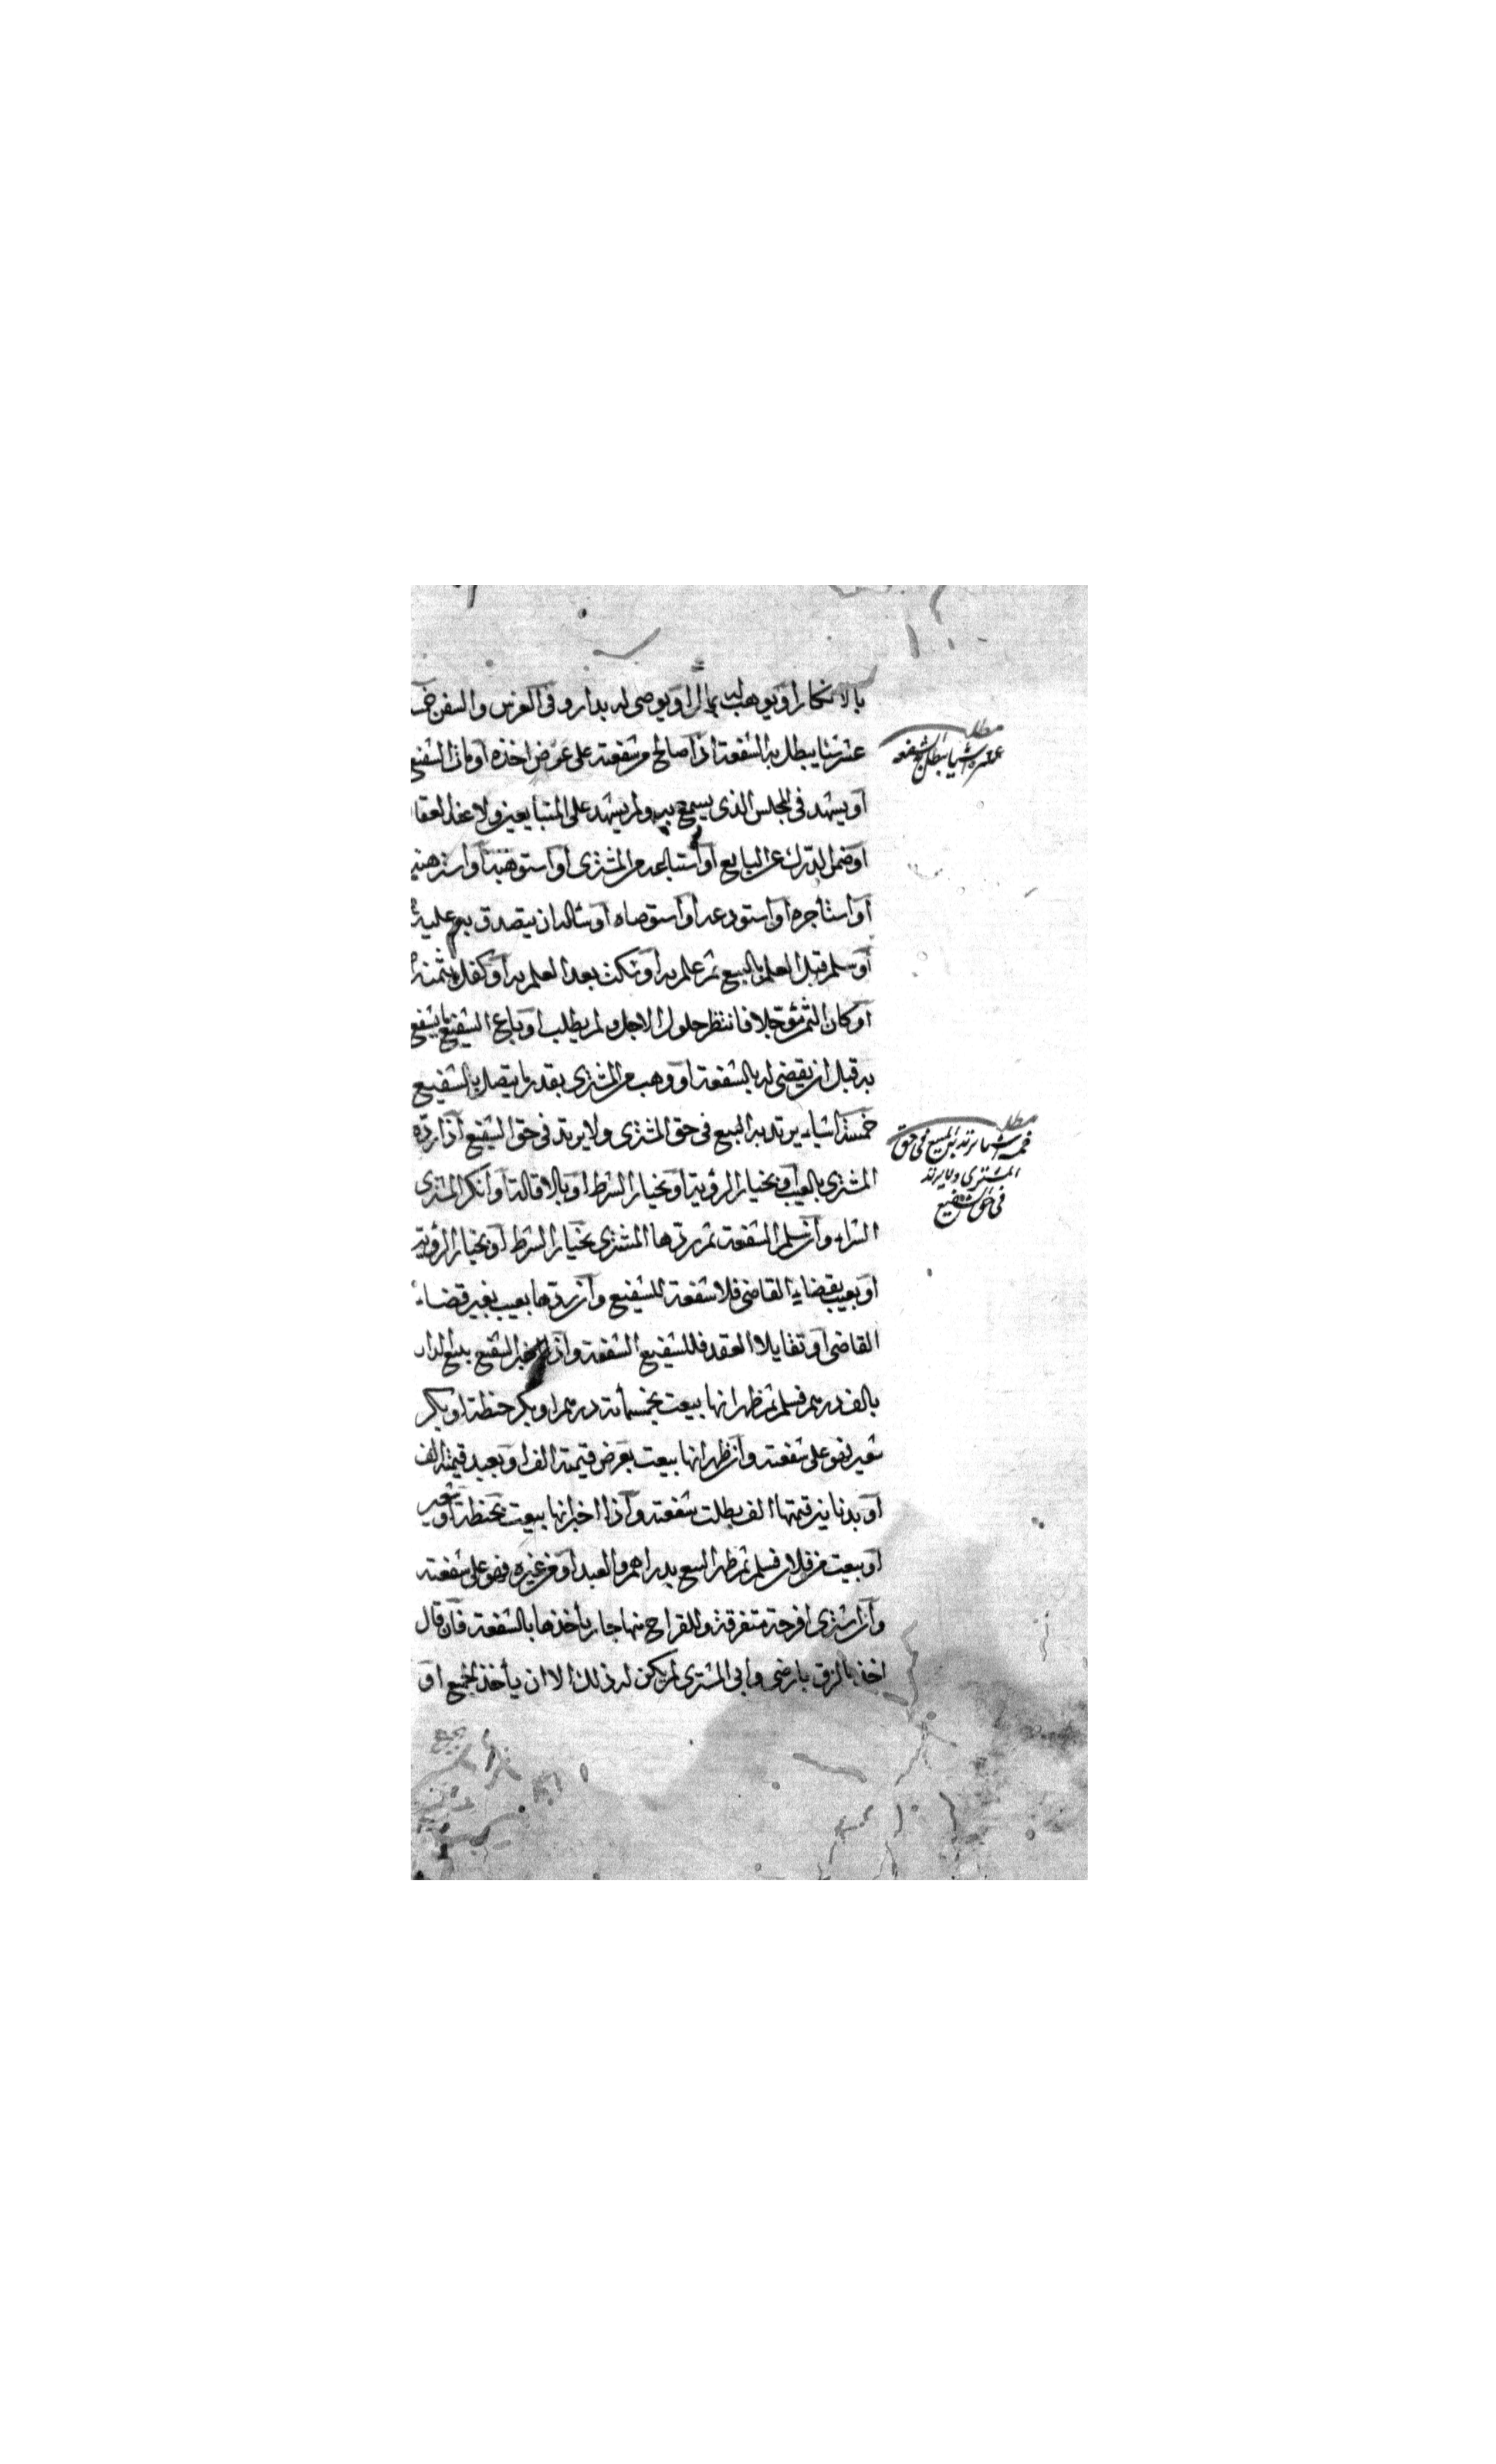 بالانكار او يوهب له بمال او يوصى له بدار وفى الغرس والسفن خمسة
عشر شيأ يبطل به الشفعة اذا صالح من شفعته على عوض اخذه او مات الشفيع
او يشهد فى المجلس الذى يسمع به ولم يشهد على المتبايعين ولا عند العقار
او ضمن الدرك عن البايع او استباعه من المشترى او استوهبه او استرهنه
او استأجره او استودعه او استوصاه او سأله ان يتصدق به عليه
او سلم قبل العلم بالبيع ثم علم به او سكت بعد العلم به او كفل بثمنه
او كان الثمن مؤجلا فانتظر حلول الاجل ولم يطلب او باع الشفيع ما يشفع
به قبل ان يقضى له بالشفعة او وهب من المشترى بقدر ما يتصل بالشفيع
خمسة اشياء يرتد به البيع فى حق المشترى ولا يرتد فى حق الشفيع اذا رده
المشترى بالعيب او بخيار الرؤية او بخيار الشرط او بالاقالة او انكر المشترى
الشراء وان سلم الشفعة ثم ردها المشترى بخيار الشرط او بخيار الرؤية
او بعيب بقضاء القاضى فلا شفعة للشفيع وان ردها بعيب بغير قضاء
القاضى او تقايلا العقد فللشفيع الشفعة واذا اخبر الشفيع ببيع الدار
بالف درهم فسلم ثم ظهر انها بيعت بخمسمأته درهم او بكر حنطة او بكر
شعير فهو على شفعته وان ظهر انها بيعت بعرض قيمته الف او بعبد قيمته الف
او بدنانير قيمتها الف بطلت شفعته واذا اخبر انها بيعت بحنطة او شعير
او بيعت من فلان فسلم ثم ظهر البيع بدراهم والعبد او من غيره فهو على شفعته
وان اشترى اقرحة متفرقة وللقراح منها جار يأخذها بالشفعة فان قال
اخذ بالزق بارضى وابى المشترى لم يكن له ذلك الا ان يأخذ الجميع او
مطلب
عشره اشيا يبطل به الشفعه
مطلب
خمسه اشيا يرتد به البيع فى حق
المشترى ولا يرتد
فى حق الشفيع